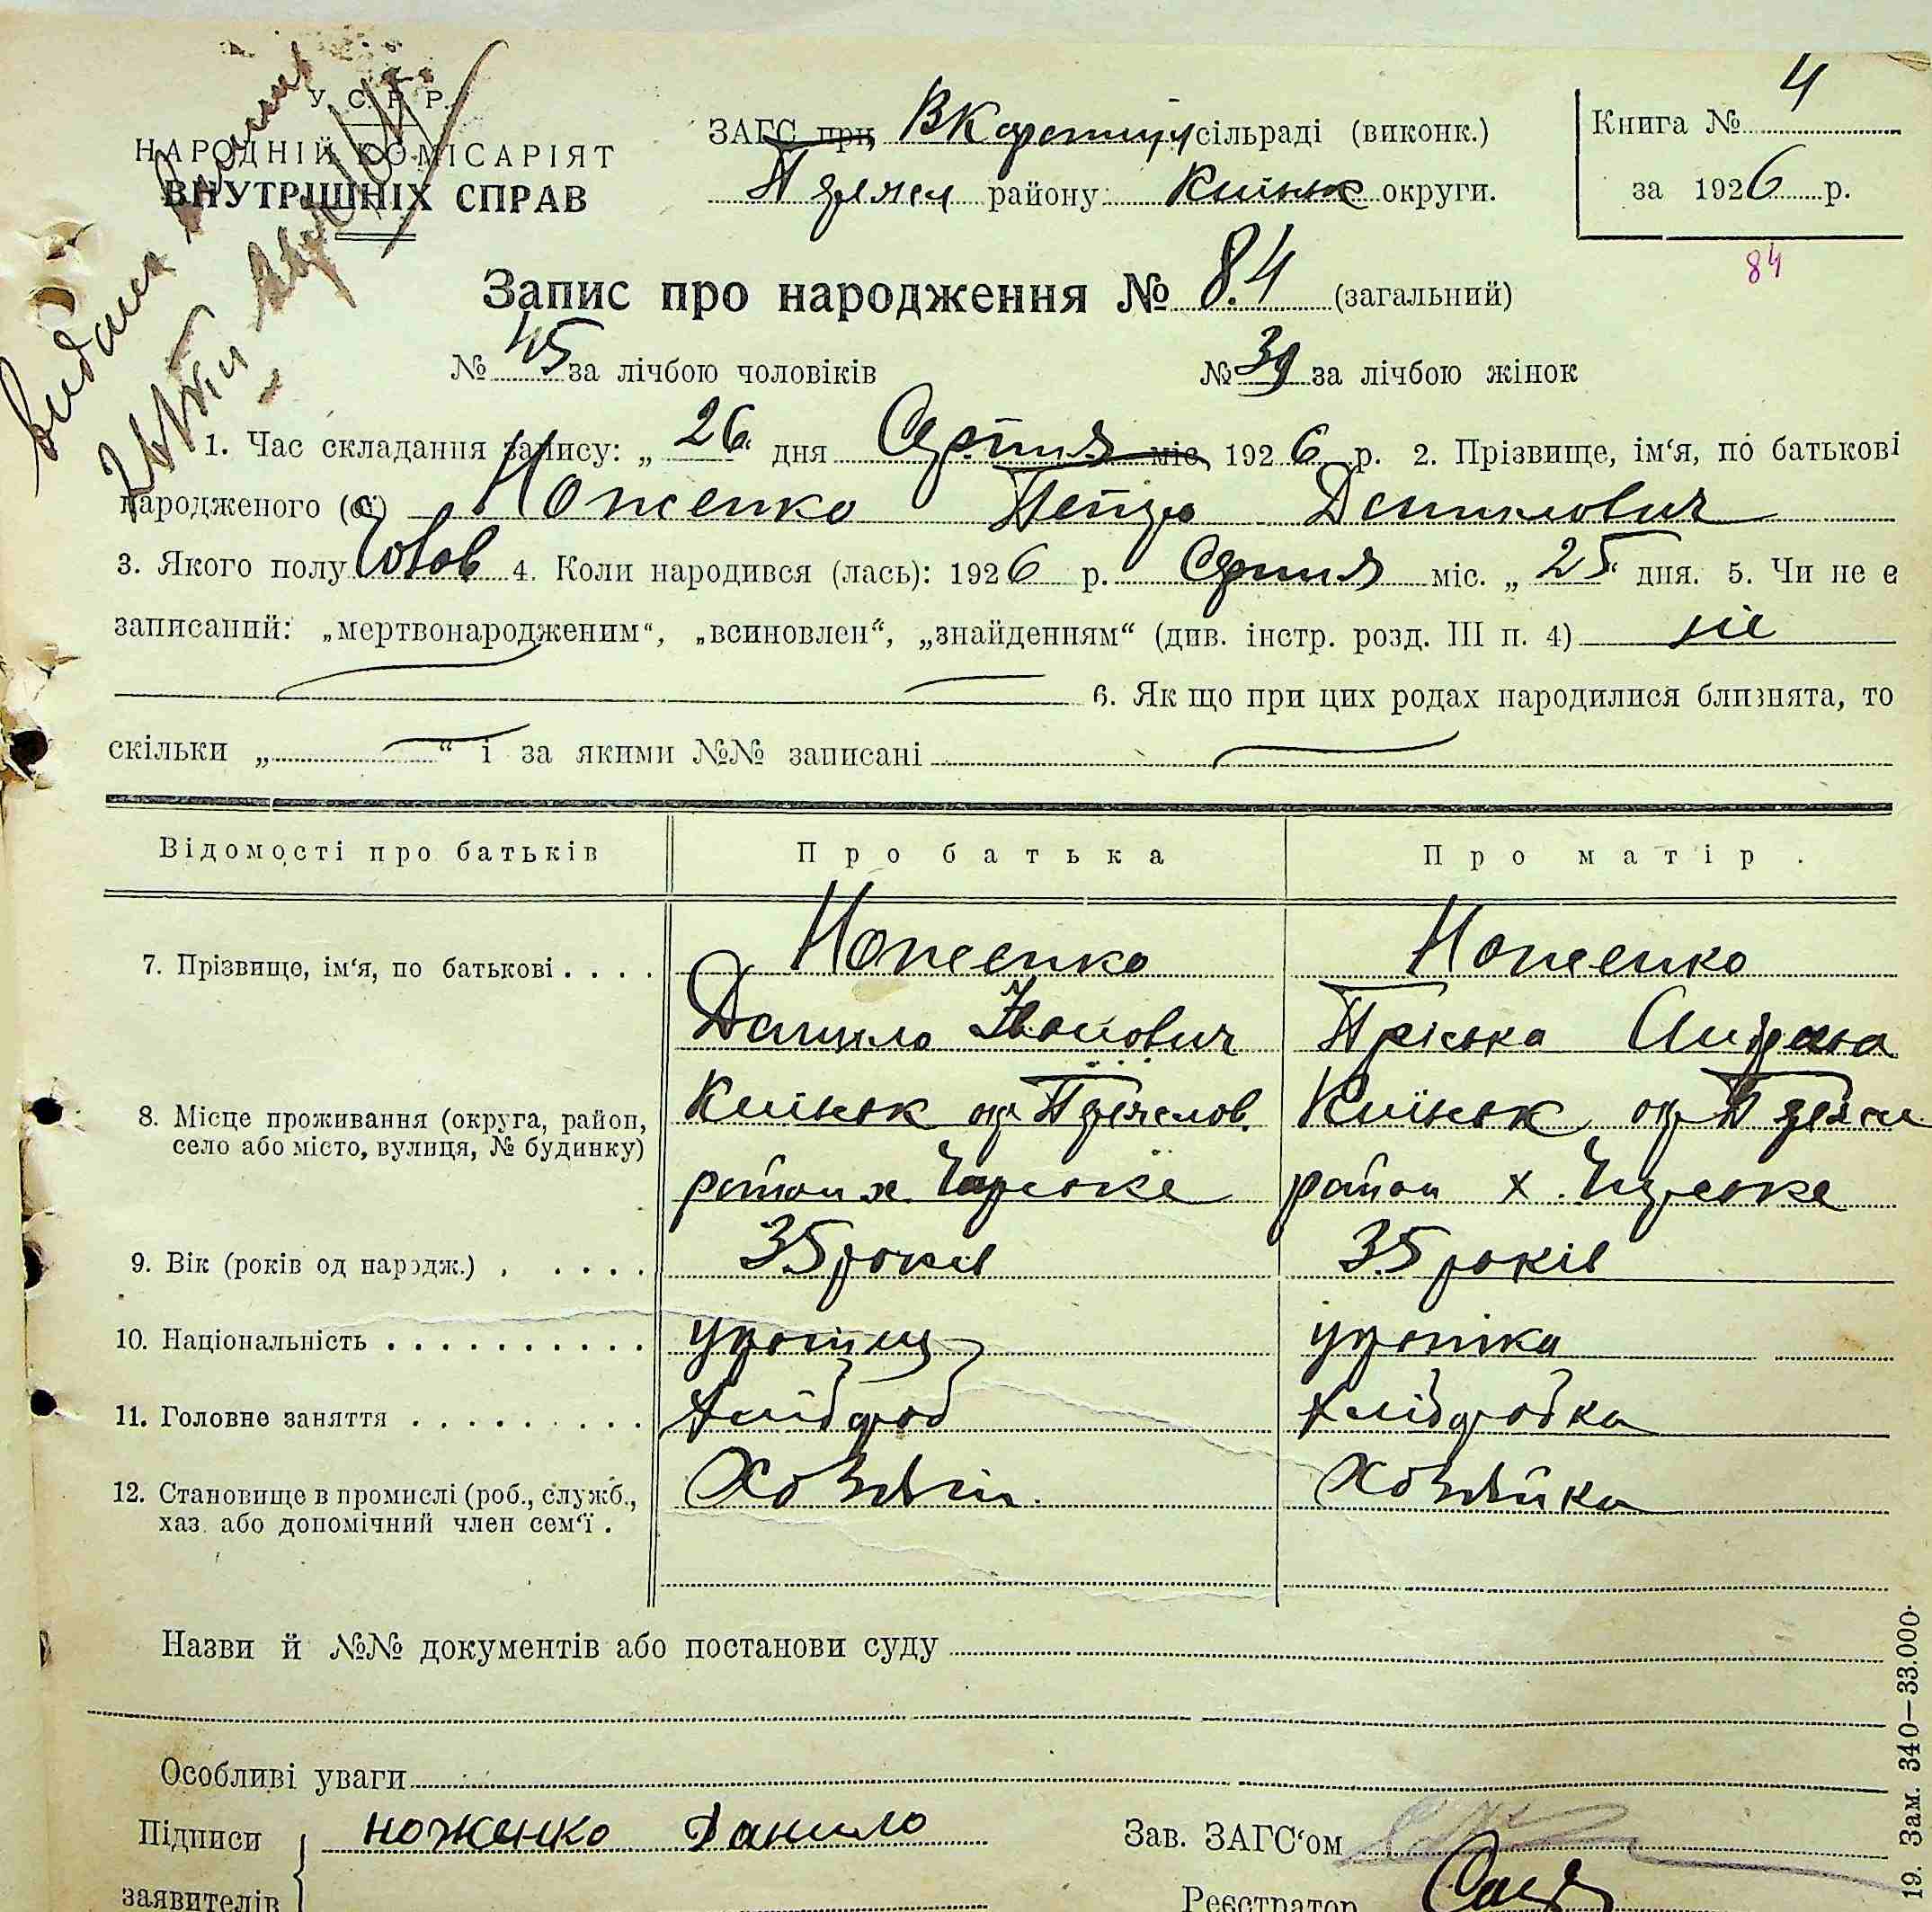 У. С. Р. Р.
НАРОДНІЙ КОМІСАРІЯТ
ВНУТРІШНІХ СПРАВ
ЗАГС при ВКаратул сільраді (виконк.)
Переясл району Київськ округи.
Книга № 4
за 1926 р.
84
Запис про народження № 84 (загальний)
№ 45 за лічбою чоловіків № 39 за лічбою жінок
1. Час складання запису: „ 26 “ дня Серпня міс. 1926 р. 2. Прізвище, ім‘я, по батькові
народженого (ої) Ноженко Петро Данилович
3. Якого полу Чолов 4. Коли народився (лась): 1926 р. Серпня міс. „ 25 “ дня. 5. Чи не є
записаний: „мертвонародженим“, „всиновлен“, „знайденням“ (див. інстр. розд. III п. 4) ні
6. Як що при цих родах народилися близнята, то
скільки „ “ і за якими №№ записані
Відомості про батьків Про батька Про матір.
7. Прізвище, ім‘я, по батькові . . . . Ноженко Ноженко
Данило Іванович Пріська
8. Місце проживання (округа, район, Київськ окр Переяслов. Київськ окр Переясл
село або місто, вулиця, № будинку)
район х. район х.
9. Вік (років од народж.) . . . . . 35 років 35 років
10. Національність . . . . . . . . . . українець українка
11. Головне заняття . . . . . . . . . Хлібороб Хліборобка
12. Становище в промислі (роб., служб., Хозяїн. Хозяйка
хаз. або допомічний член сем‘ї .
Назви й №№ документів або постанови суду
Особливі уваги
Підписи Ноженко Данило Зав. ЗАГС‘ом
заявителів Реєстратор
19. Зам. 340—33.000.